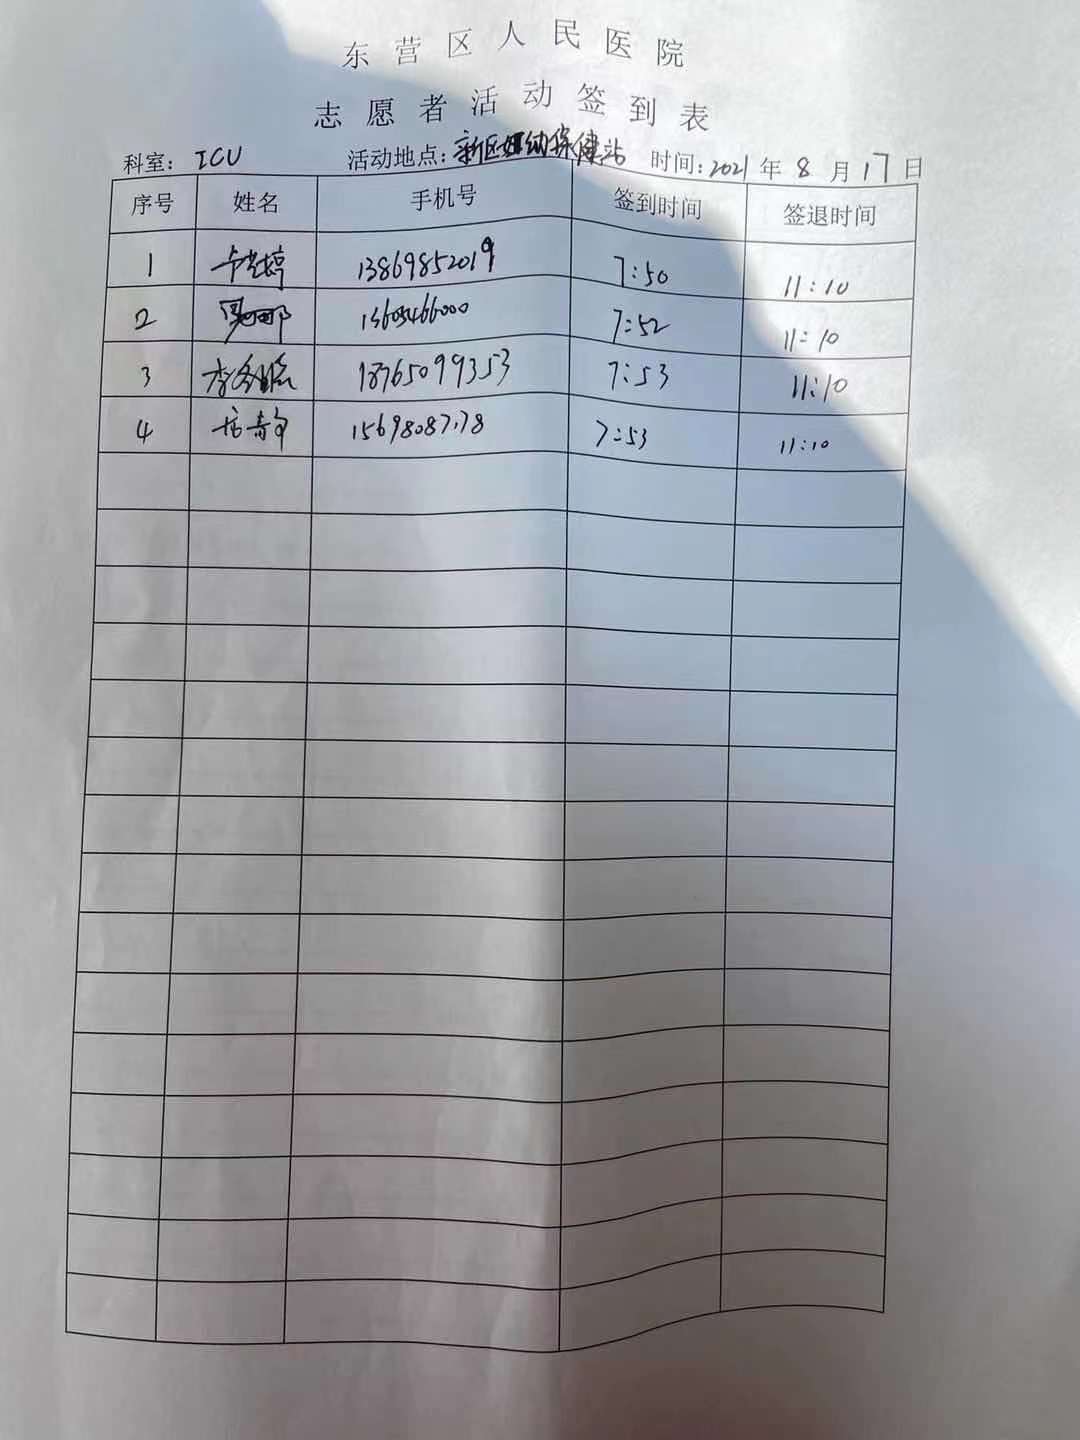 东营区人民医院
志愿者活动签到表
科室: ICU 活动地点: 新区妇幼保健站 时间: 2021年8月17日
序号 姓名 手机号 签到时间 签退时间
1 13869852019 7:50 11:10
2 7:52 11:10
3 18765099353 7:53 11:10
4 7:53 11:10